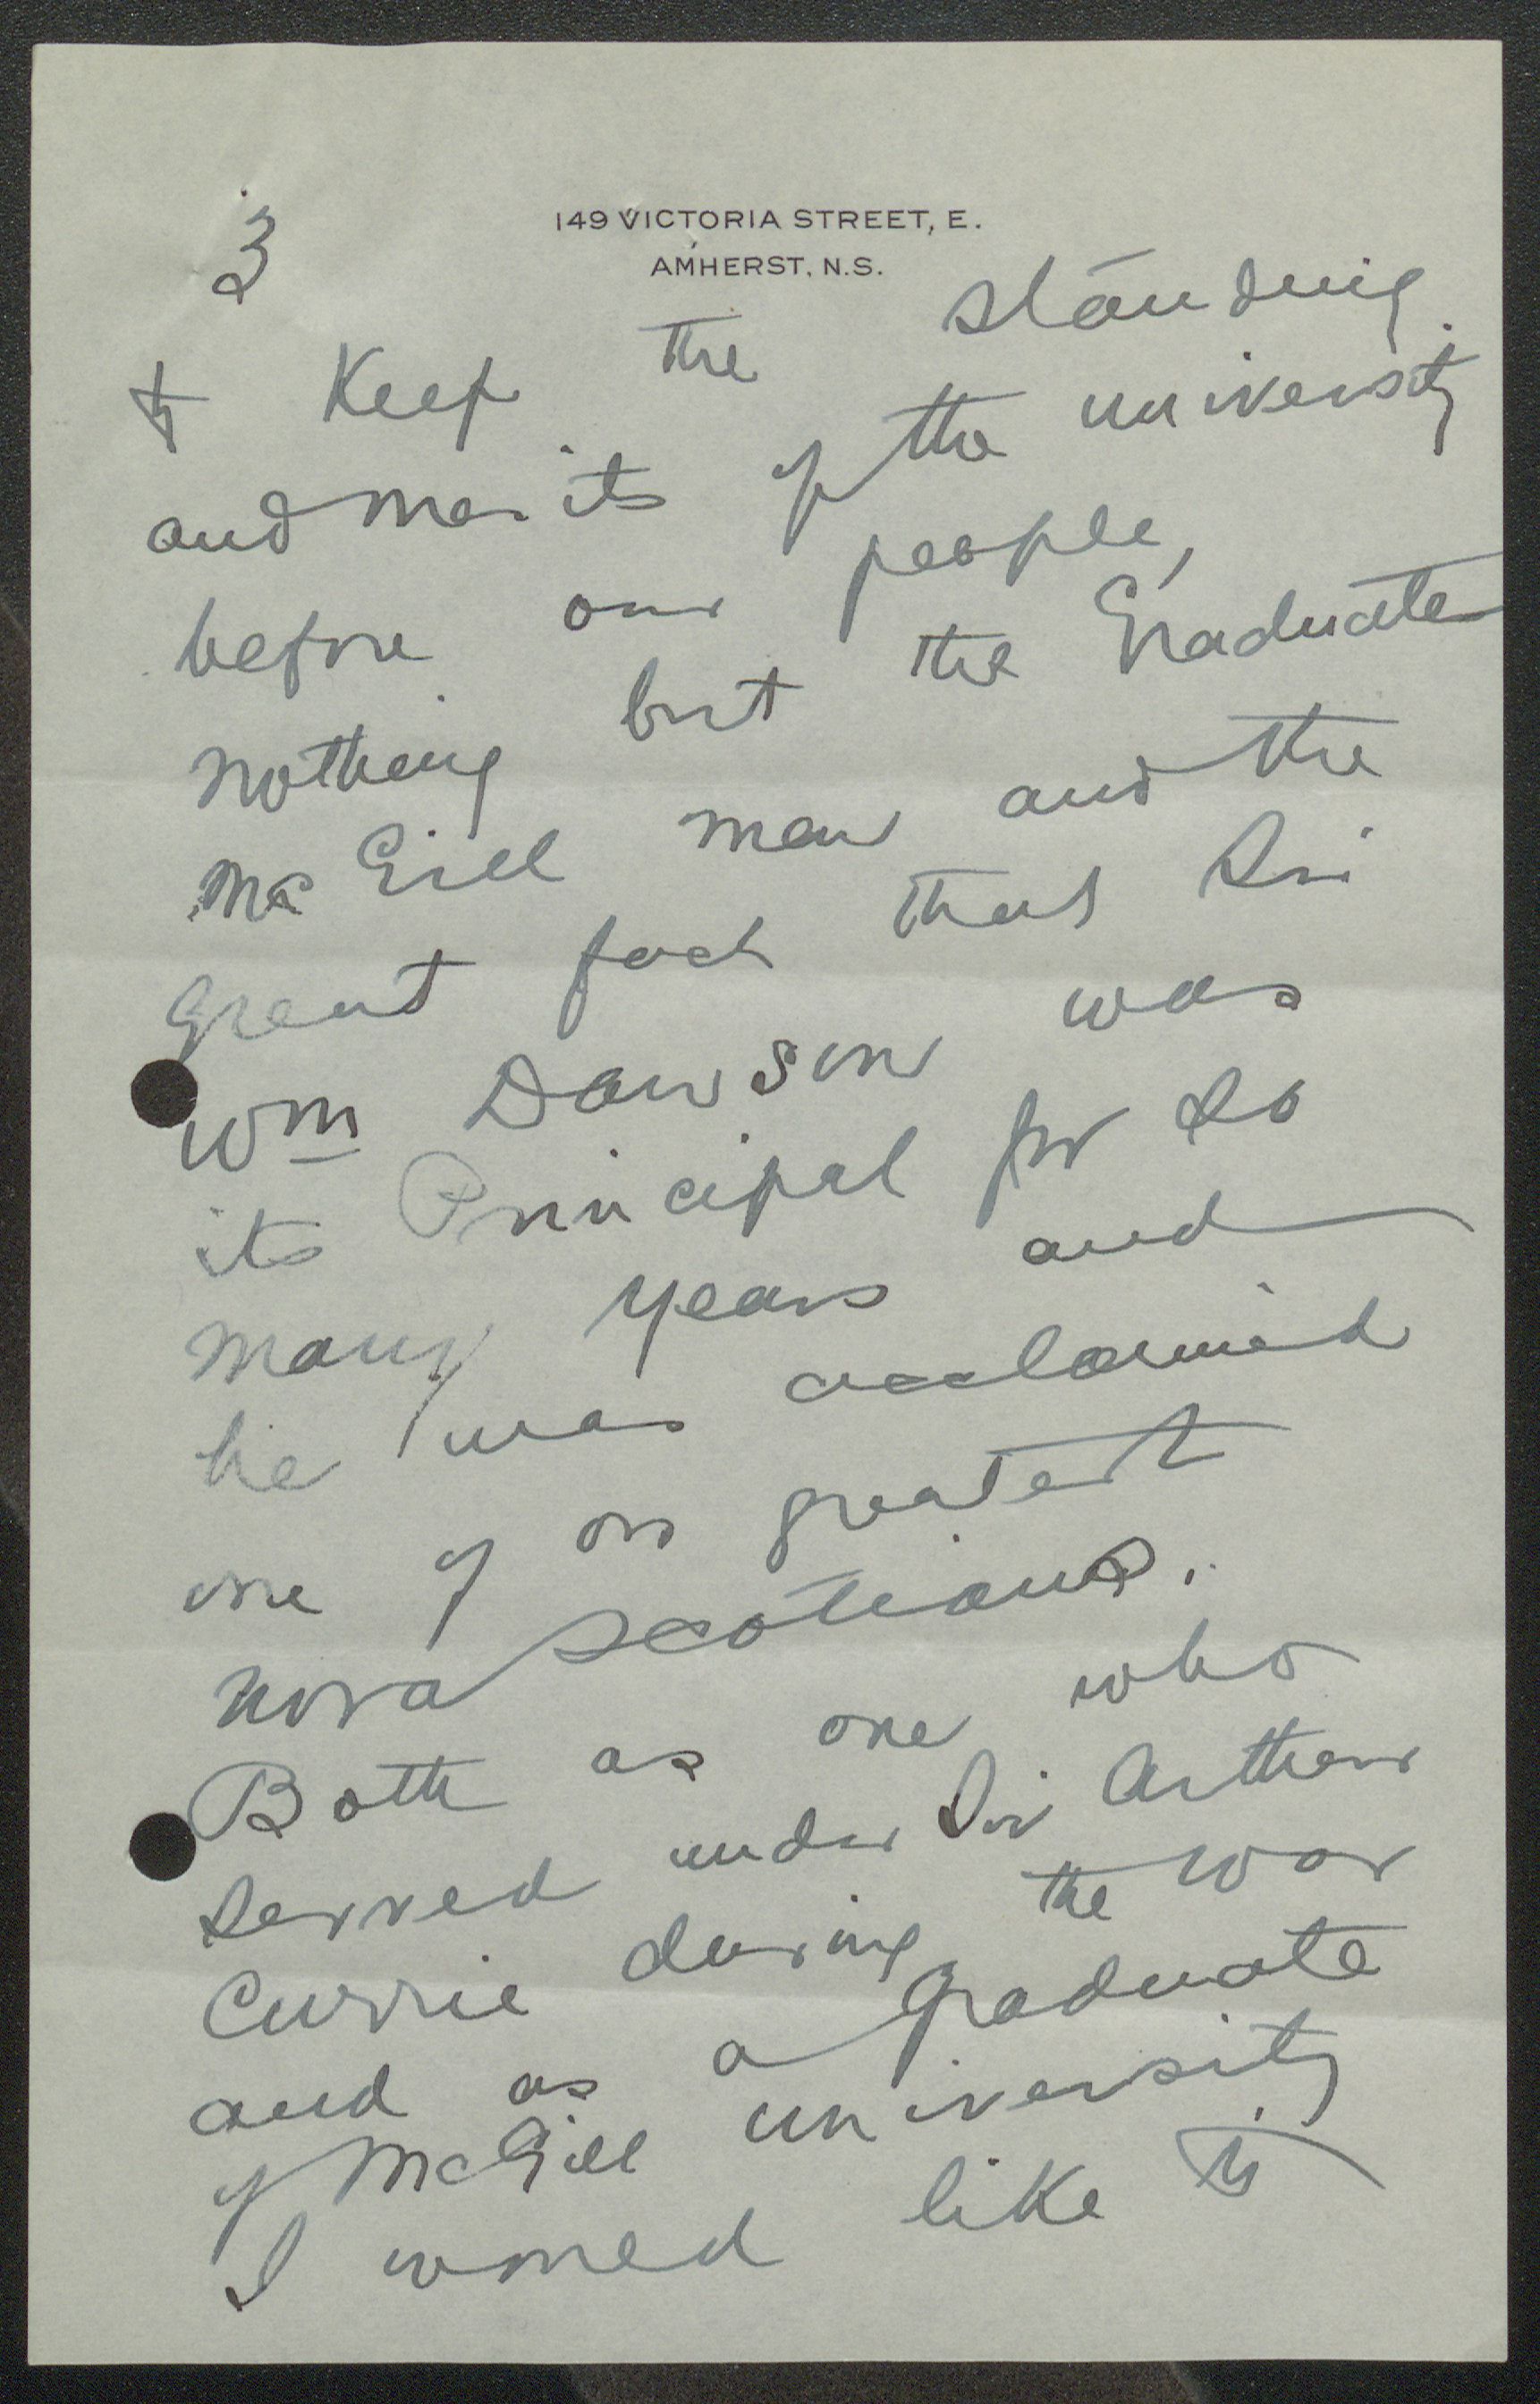 3
149 VICTORIA STREET, E.
AMHERST, N.S.
to Keep the standing
and merits of the university
before our people,
nothing but the Graduate
McGill men and the
great fact that Sir
Wm Dawson was
its Principal for so
many years and
he was acclaimed
one of our greatest
Nova Scotians.
Both as one who
served under Sir Arthur
Currie during the war
and as a graduate
of McGill university
I would like to